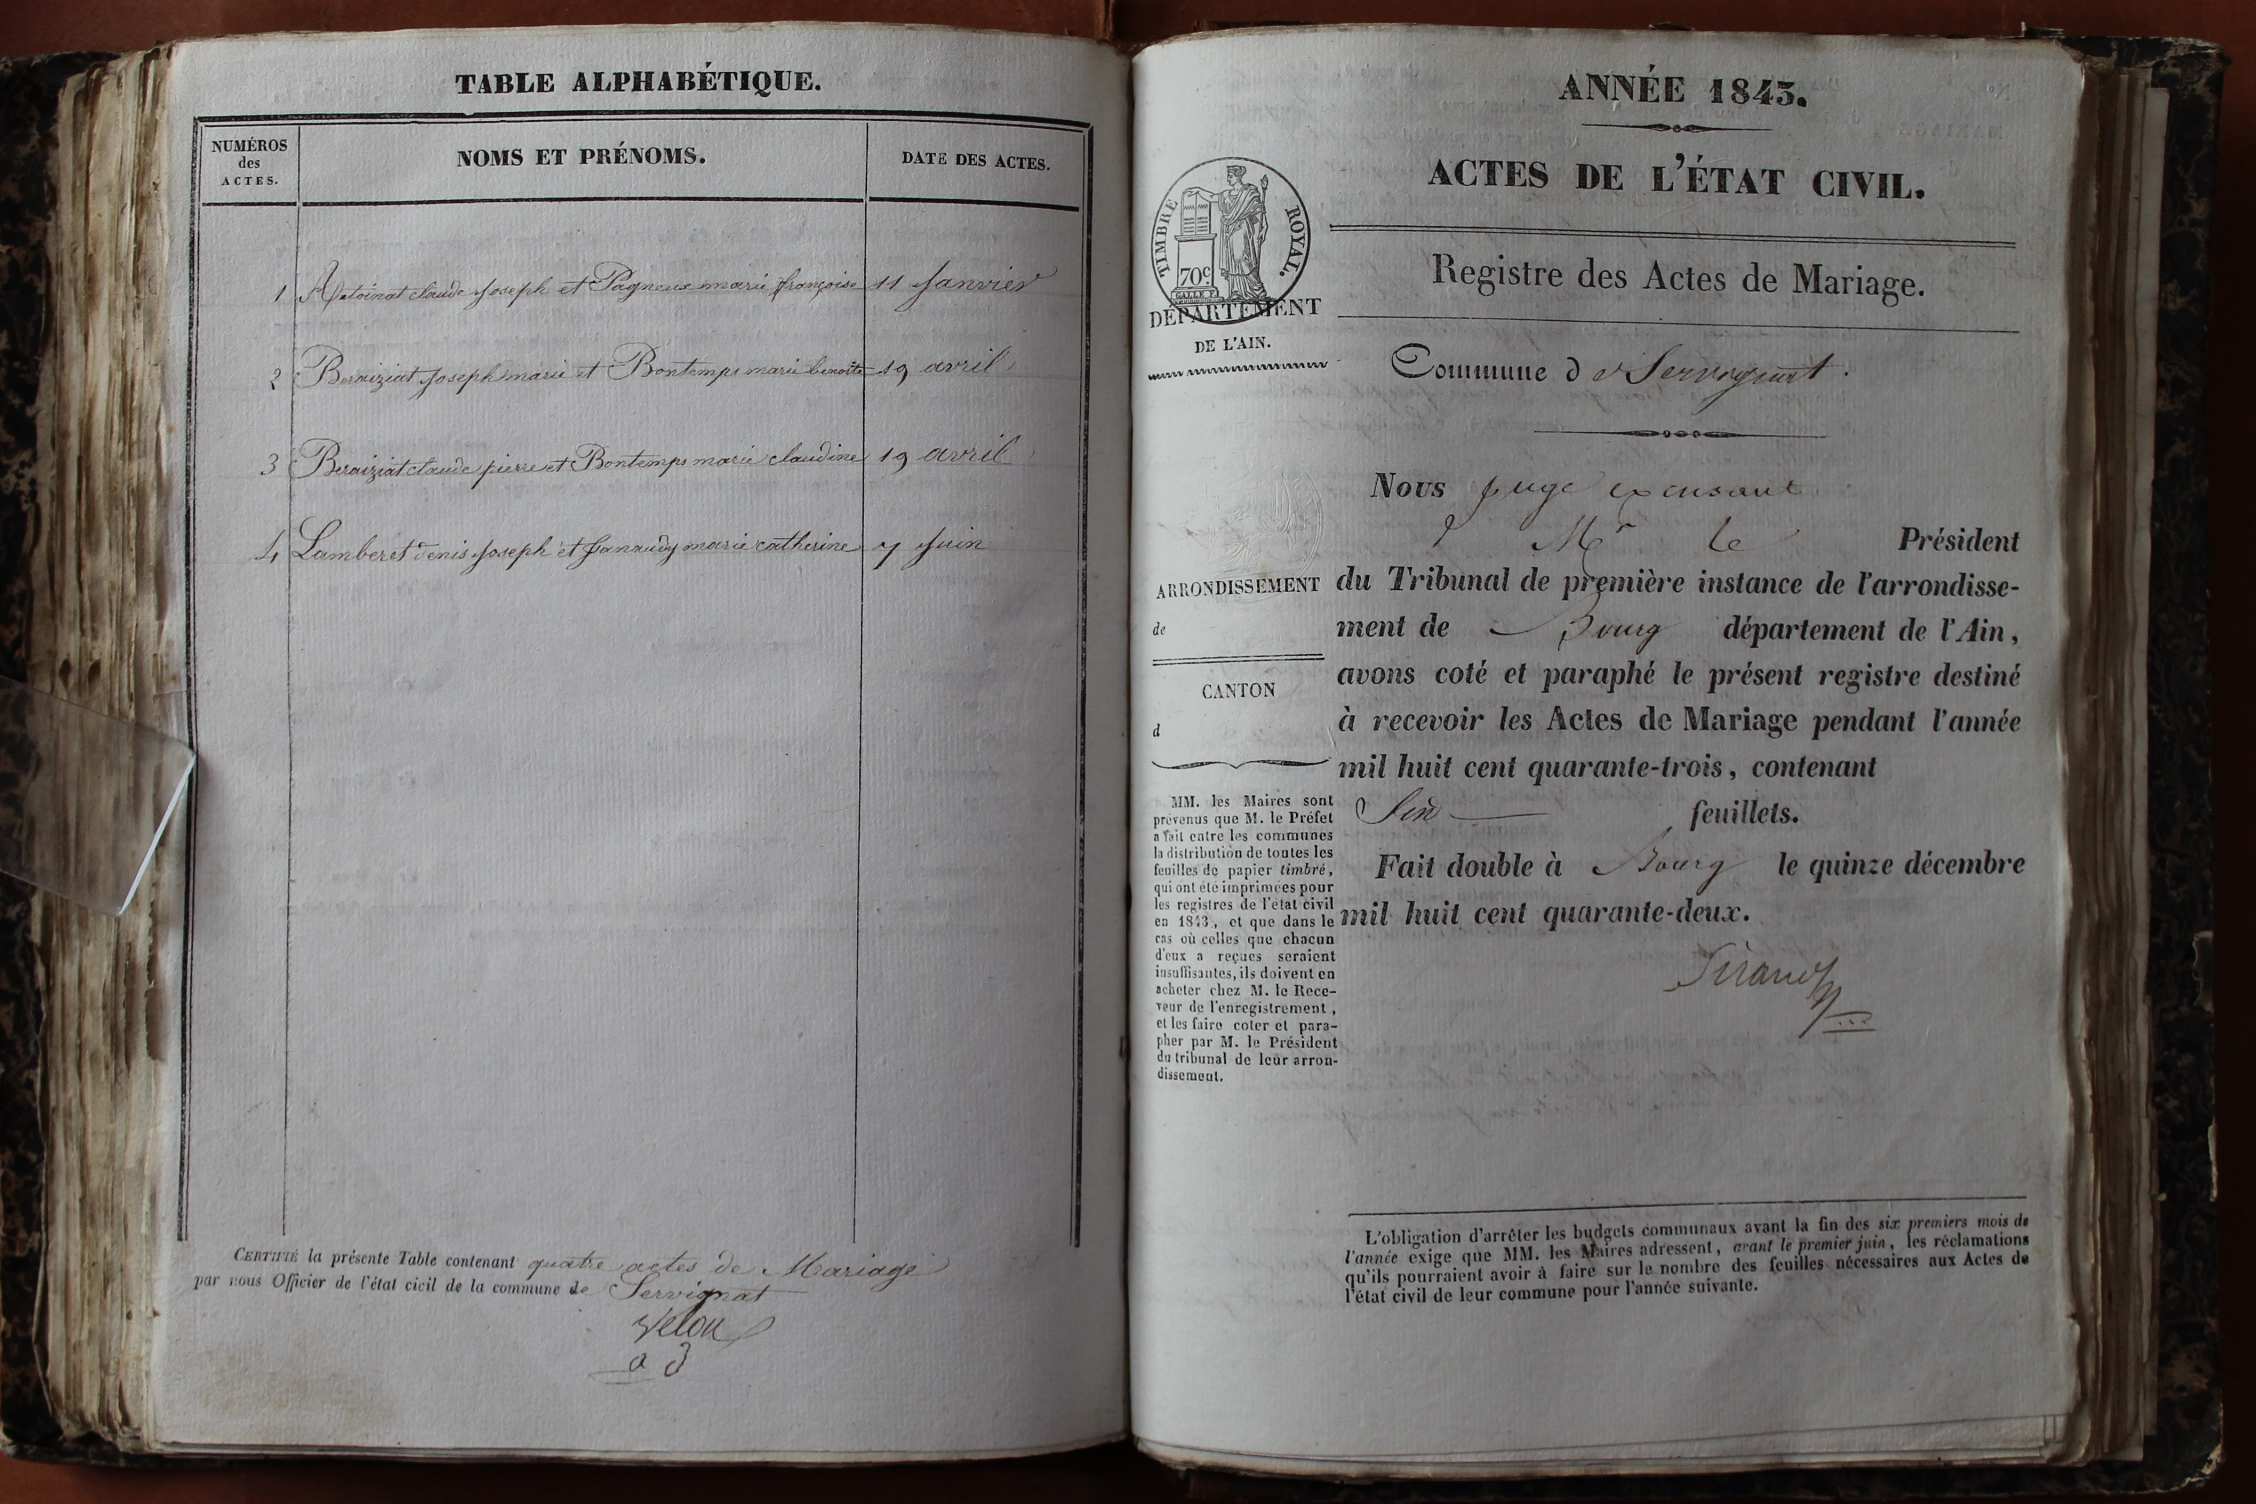 TABLE ALPHABÉTIQUE.
NUMÉROS
des
ACTES.
NOMS ET PRÉNOMS.
DATE DES ACTES.
1 claude Joseph et Pagneux marie françoise 11 Janvier
2 Beraiziat Joseph marie et Bontemps marie benoite 19 avril
3 Beraiziat claude pierre et Bontemps marie claudine 19 avril
4 Lamberet denis Joseph et marie catherine 7 Juin
CERTIFIÉ la présente Table contenant quatre actes de Mariage
par nous Officier de l'état civil de la commune de Servignat
Velon
a d
ANNÉE 1843.
ACTES DE L'ÉTAT CIVIL.
Registre des Actes de Mariage.
TIMBRE ROYAL.
70c
DÉPARTEMENT
DE L'AIN.
Commune d e Servignat.
Nous juge
Mr le Président
du Tribunal de première instance de l'arrondisse-
ment de Bourg département de l'Ain,
avons coté et paraphé le présent registre destiné
à recevoir les Actes de Mariage pendant l'année
mil huit cent quarante-trois, contenant
feuillets.
Fait double à Bourg le quinze décembre
mil huit cent quarante-deux.
ARRONDISSEMENT
de
CANTON
d
MM. les Maires sont
prévenus que M. le Préfet
a fait entre les communes
la distribution de toutes les
feuilles de papier timbré,
qui ont été imprimées pour
les registres de l'état civil
en 1843, et que dans le
cas où celles que chacun
d'eux a reçues seraient
insuffisantes, ils doivent en
acheter chez M. le Rece-
veur de l'enregistrement,
et les faire coter et para-
pher par M. le Président
du tribunal de leur arron-
dissement.
L'obligation d'arrêter les budgets communaux avant la fin des six premiers mois de
l'année exige que MM. les Maires adressent, avant le premier juin, les réclamations
qu'ils pourraient avoir à faire sur le nombre des feuilles nécessaires aux Actes de
l'état civil de leur commune pour l'année suivante.